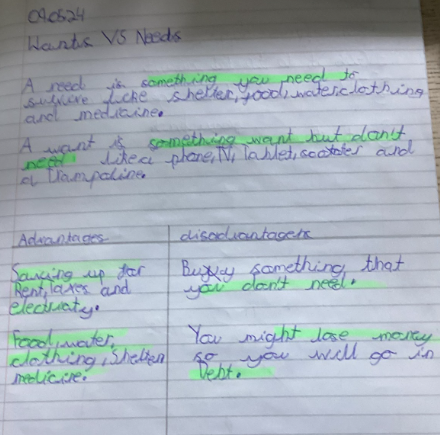 090524
Wants VS Needs
A need is something you need to
survive like shelter, food, water, clothing
and medicaine.
A want is something want but don't
need like a phone, TV, Tablet, and
a Trampoline.
Advantages
disadvantagers
Saving up for
Rent, taxes and
electricaty.
Buyy something that
you don't need.
Food, water,
clothing, Shelter
medicine.
You might lose money
so you will go in
Debt.